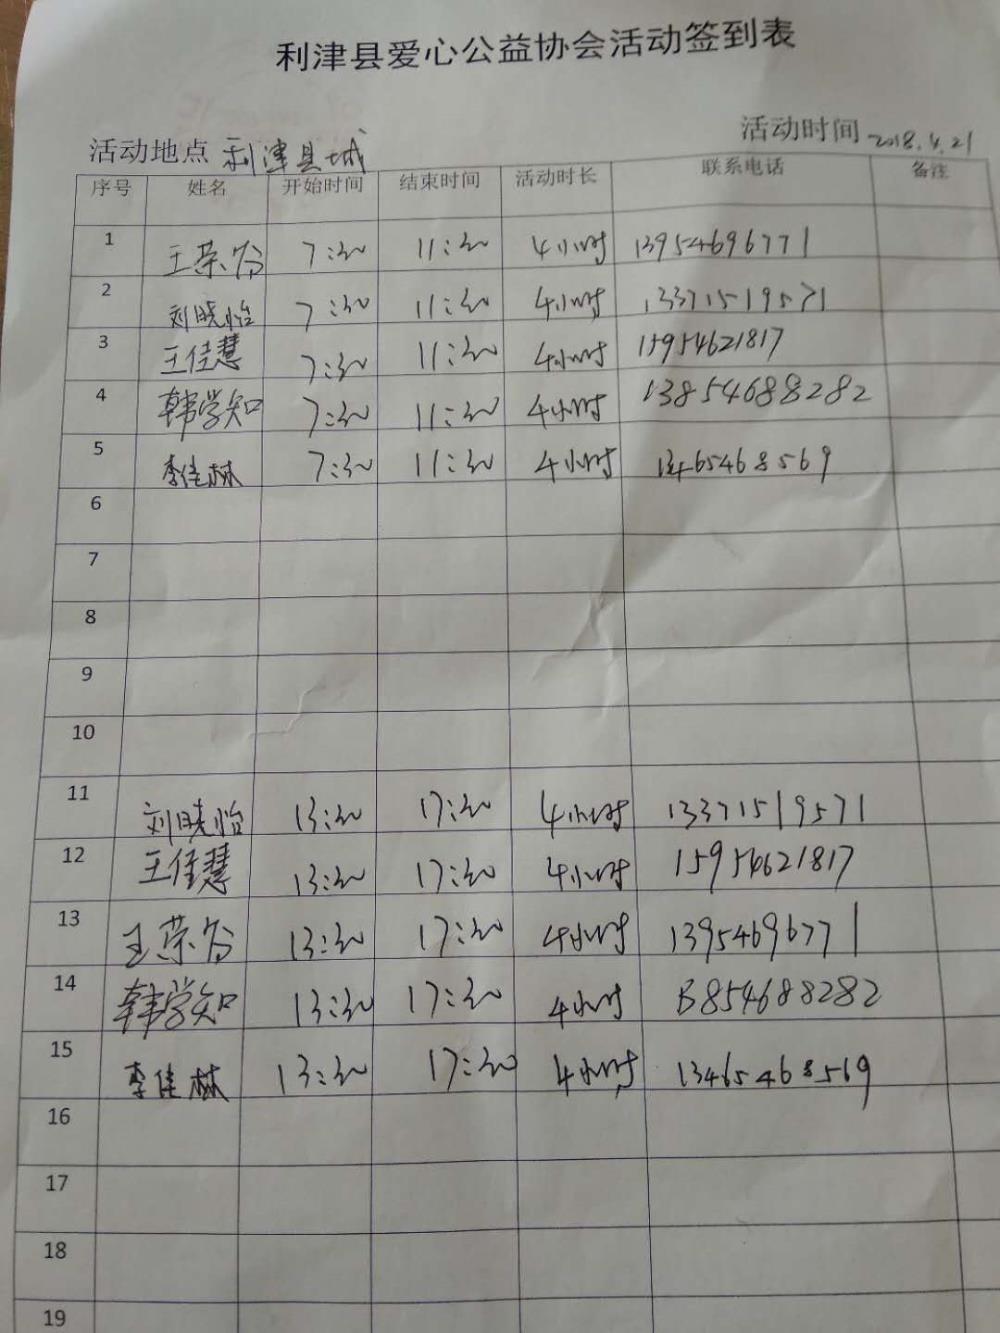 利津县爱心公益协会活动签到表
活动地点 利津县城 活动时间 2018.4.21
序号 姓名 开始时间 结束时间 活动时长 联系电话 备注
1 王荣谷 7:30 11:30 4小时 13954696771
2 刘晓怡 7:30 11:30 4小时 13371519571
3 王佳慧 7:30 11:30 4小时 15954621817
4 韩学知 7:30 11:30 4小时 13854688282
5 李佳林 7:30 11:30 4小时 13465468569
6
7
8
9
10
11 刘晓怡 13:30 17:30 4小时 13371519571
12 王佳慧 13:30 17:30 4小时 15954621817
13 王荣谷 13:30 17:30 4小时 13954696771
14 韩学知 13:30 17:30 4小时 13854688282
15 李佳林 13:30 17:30 4小时 13465468569
16
17
18
19